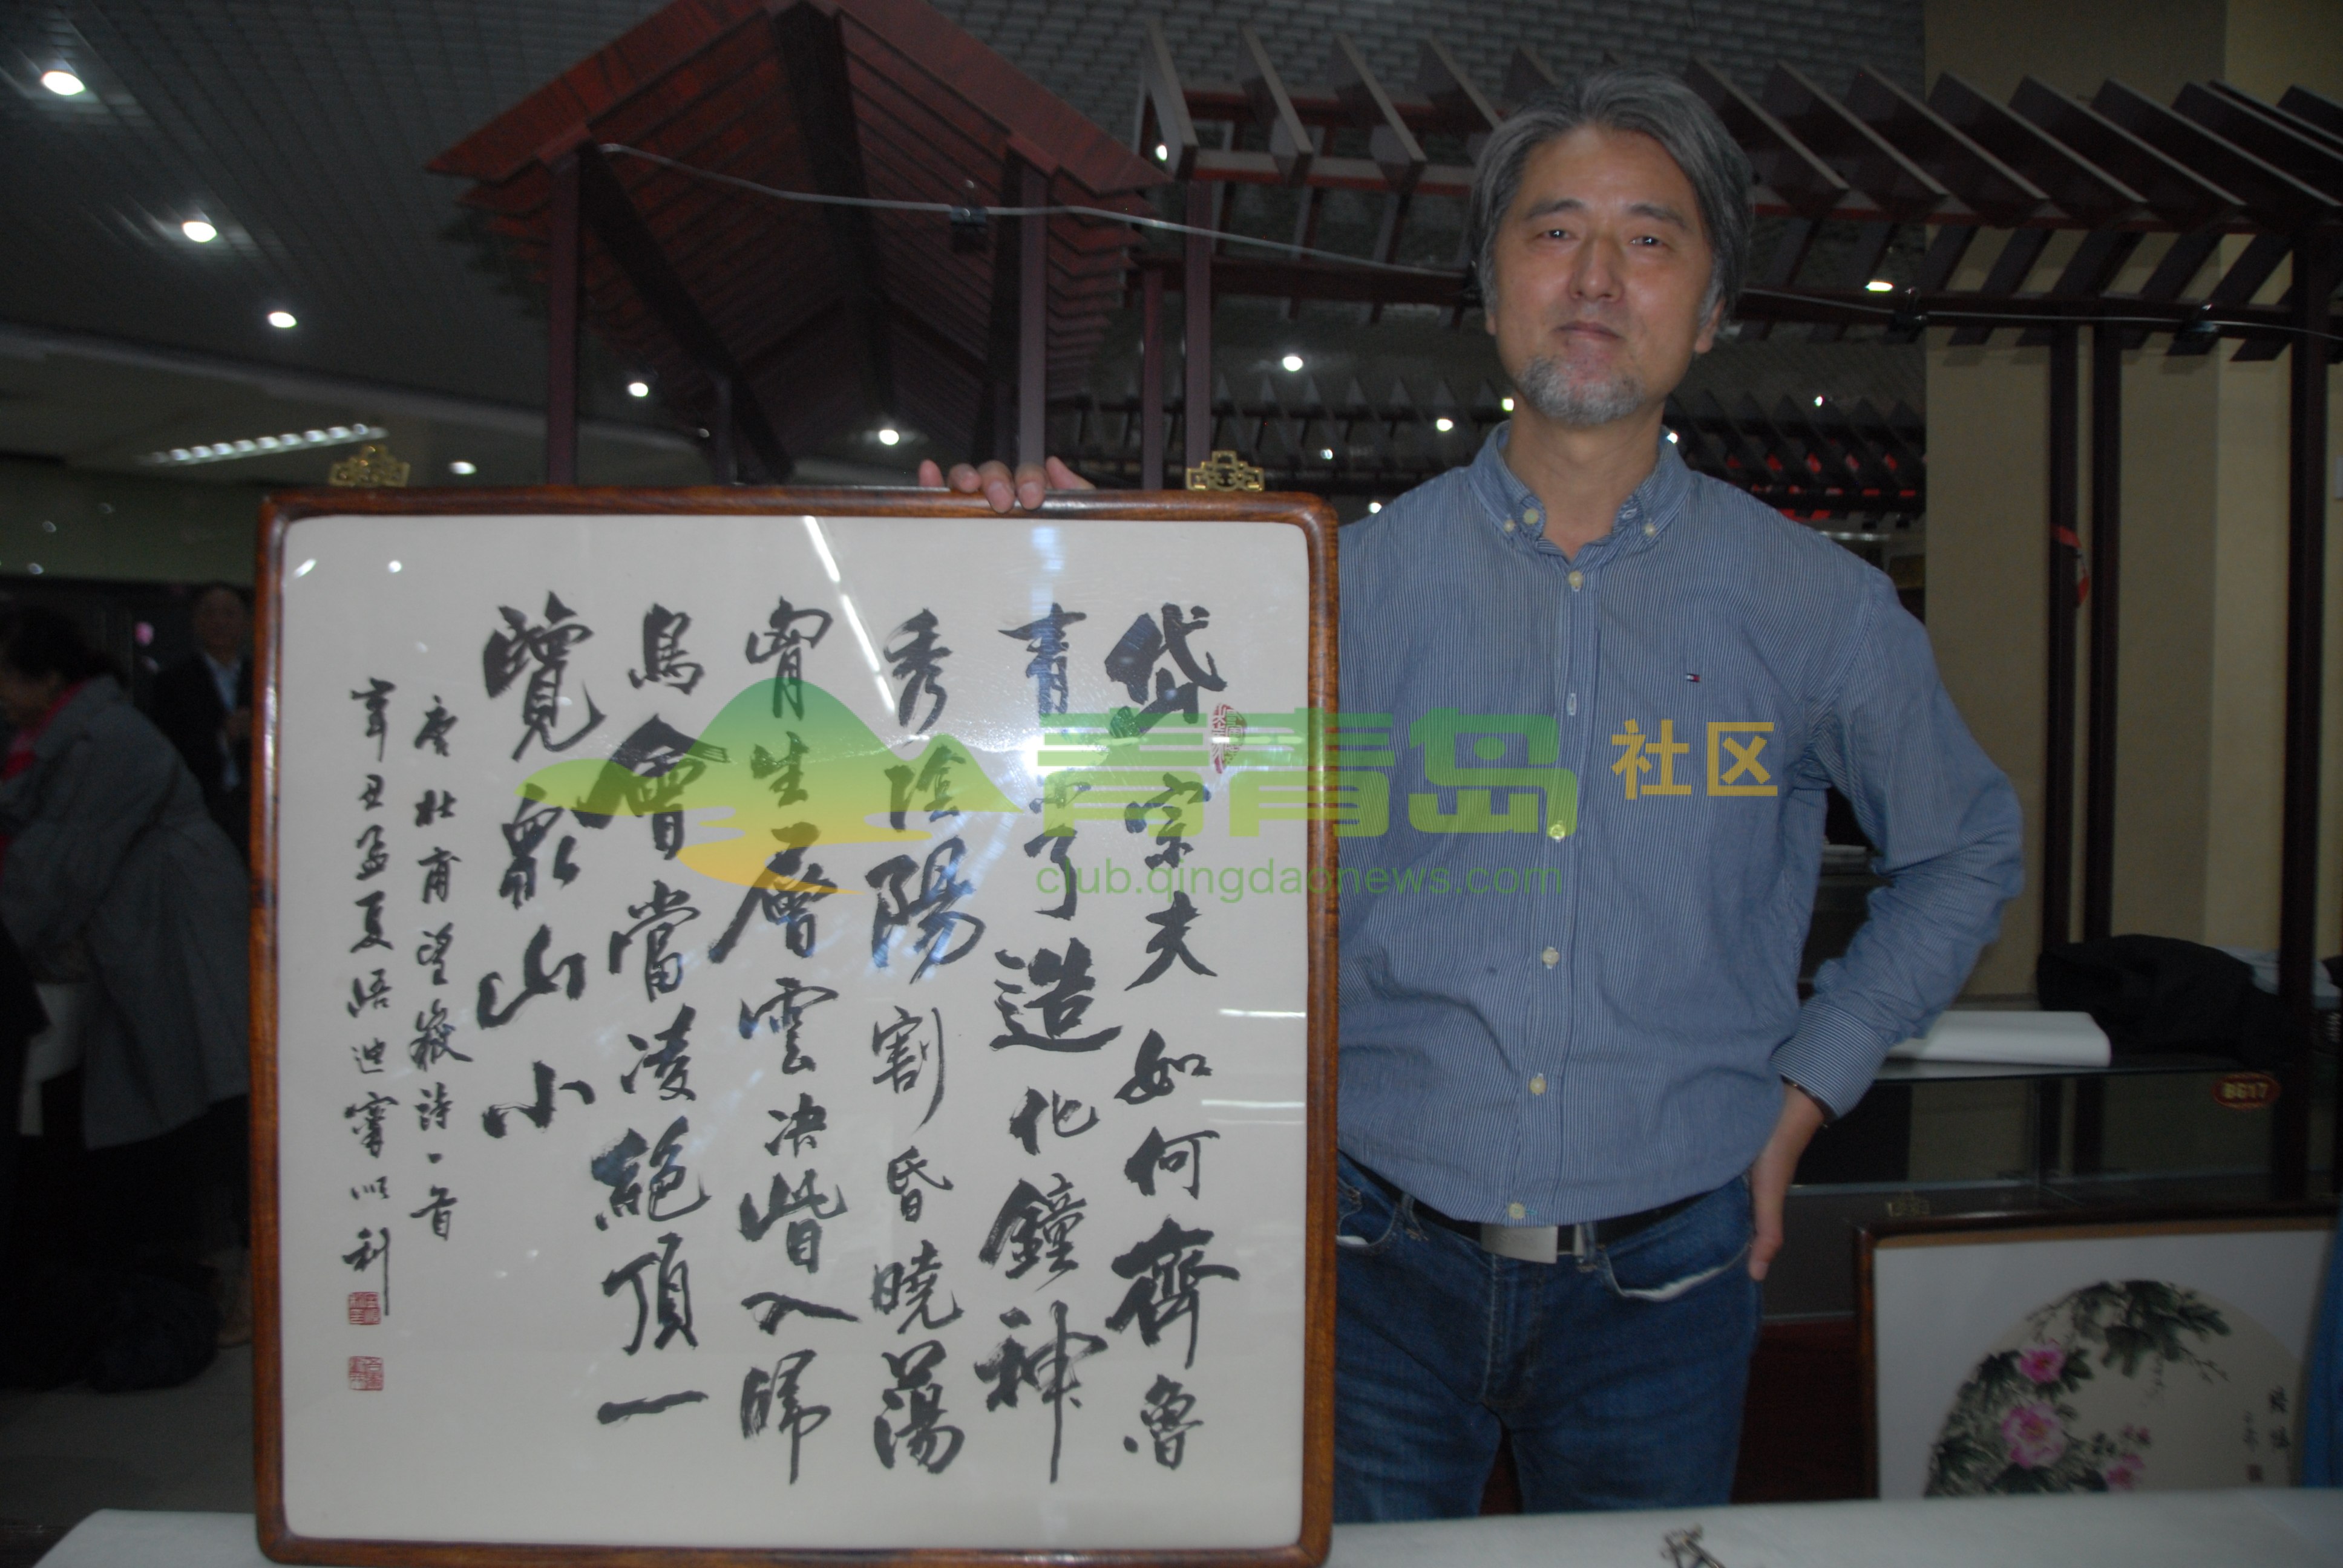 岱宗夫如何齊魯
青未了造化鐘神
秀陰陽割昏曉蕩
胷生層雲决眥入歸
鳥會當凌絕頂一
覽眾山小
唐杜甫望嶽詩一首
辛丑孟夏
青青岛 社区
club.qingdaonews.com